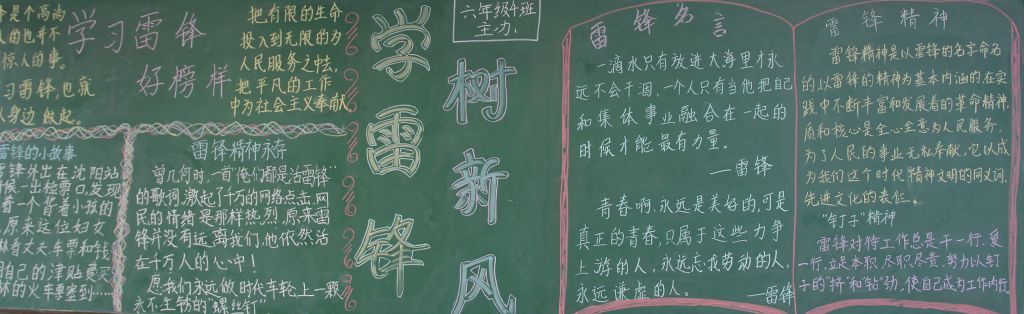 学习雷锋
好榜样
把有限的生命
投入到无限的为
人民服务之中去,
把平凡的工作
中为社会主义奉献
雷锋的小故事
锋外出在沈阳站
候一出检票口,发现
着一个背着小孩的
原来这位妇女
车票和钱
自己的津贴费买
的火车票塞到……
雷锋精神永存
曾几何时,一首“俺们都是活雷锋”
的歌词,激起了千万的网络点击,网
民的情绪是那样热烈,原来雷
锋并没有远离我们,他依然活
在千万人的心中!
愿我们永远做时代车轮上一颗
永不生锈的“螺丝钉”
学雷锋
树新风
六年级4班
主办
雷锋名言
一滴水只有放进大海里才永
远不会干涸,一个人只有当他把自己
和集体事业融合在一起的
时候才能最有力量。
—雷锋
青春啊,永远是美好的,可是
真正的青春,只属于这些力争
上游的人,永远忘我劳动的人,
永远谦虚的人。
—雷锋
雷锋精神
雷锋精神是以雷锋的名字命名
的,以雷锋的精神为基本内涵的,在实
践中不断丰富和发展着的革命精神,
质和核心是全心全意为人民服务,
为了人民的事业无私奉献,它以成
为我们这个时代精神文明的同义词,
先进文化的表征。
“钉子”精神
雷锋对待工作总是干一行,爱
一行,立足本职,尽职尽责,努力以钉
子的“挤”和“钻”劲,使自己成为工作内行